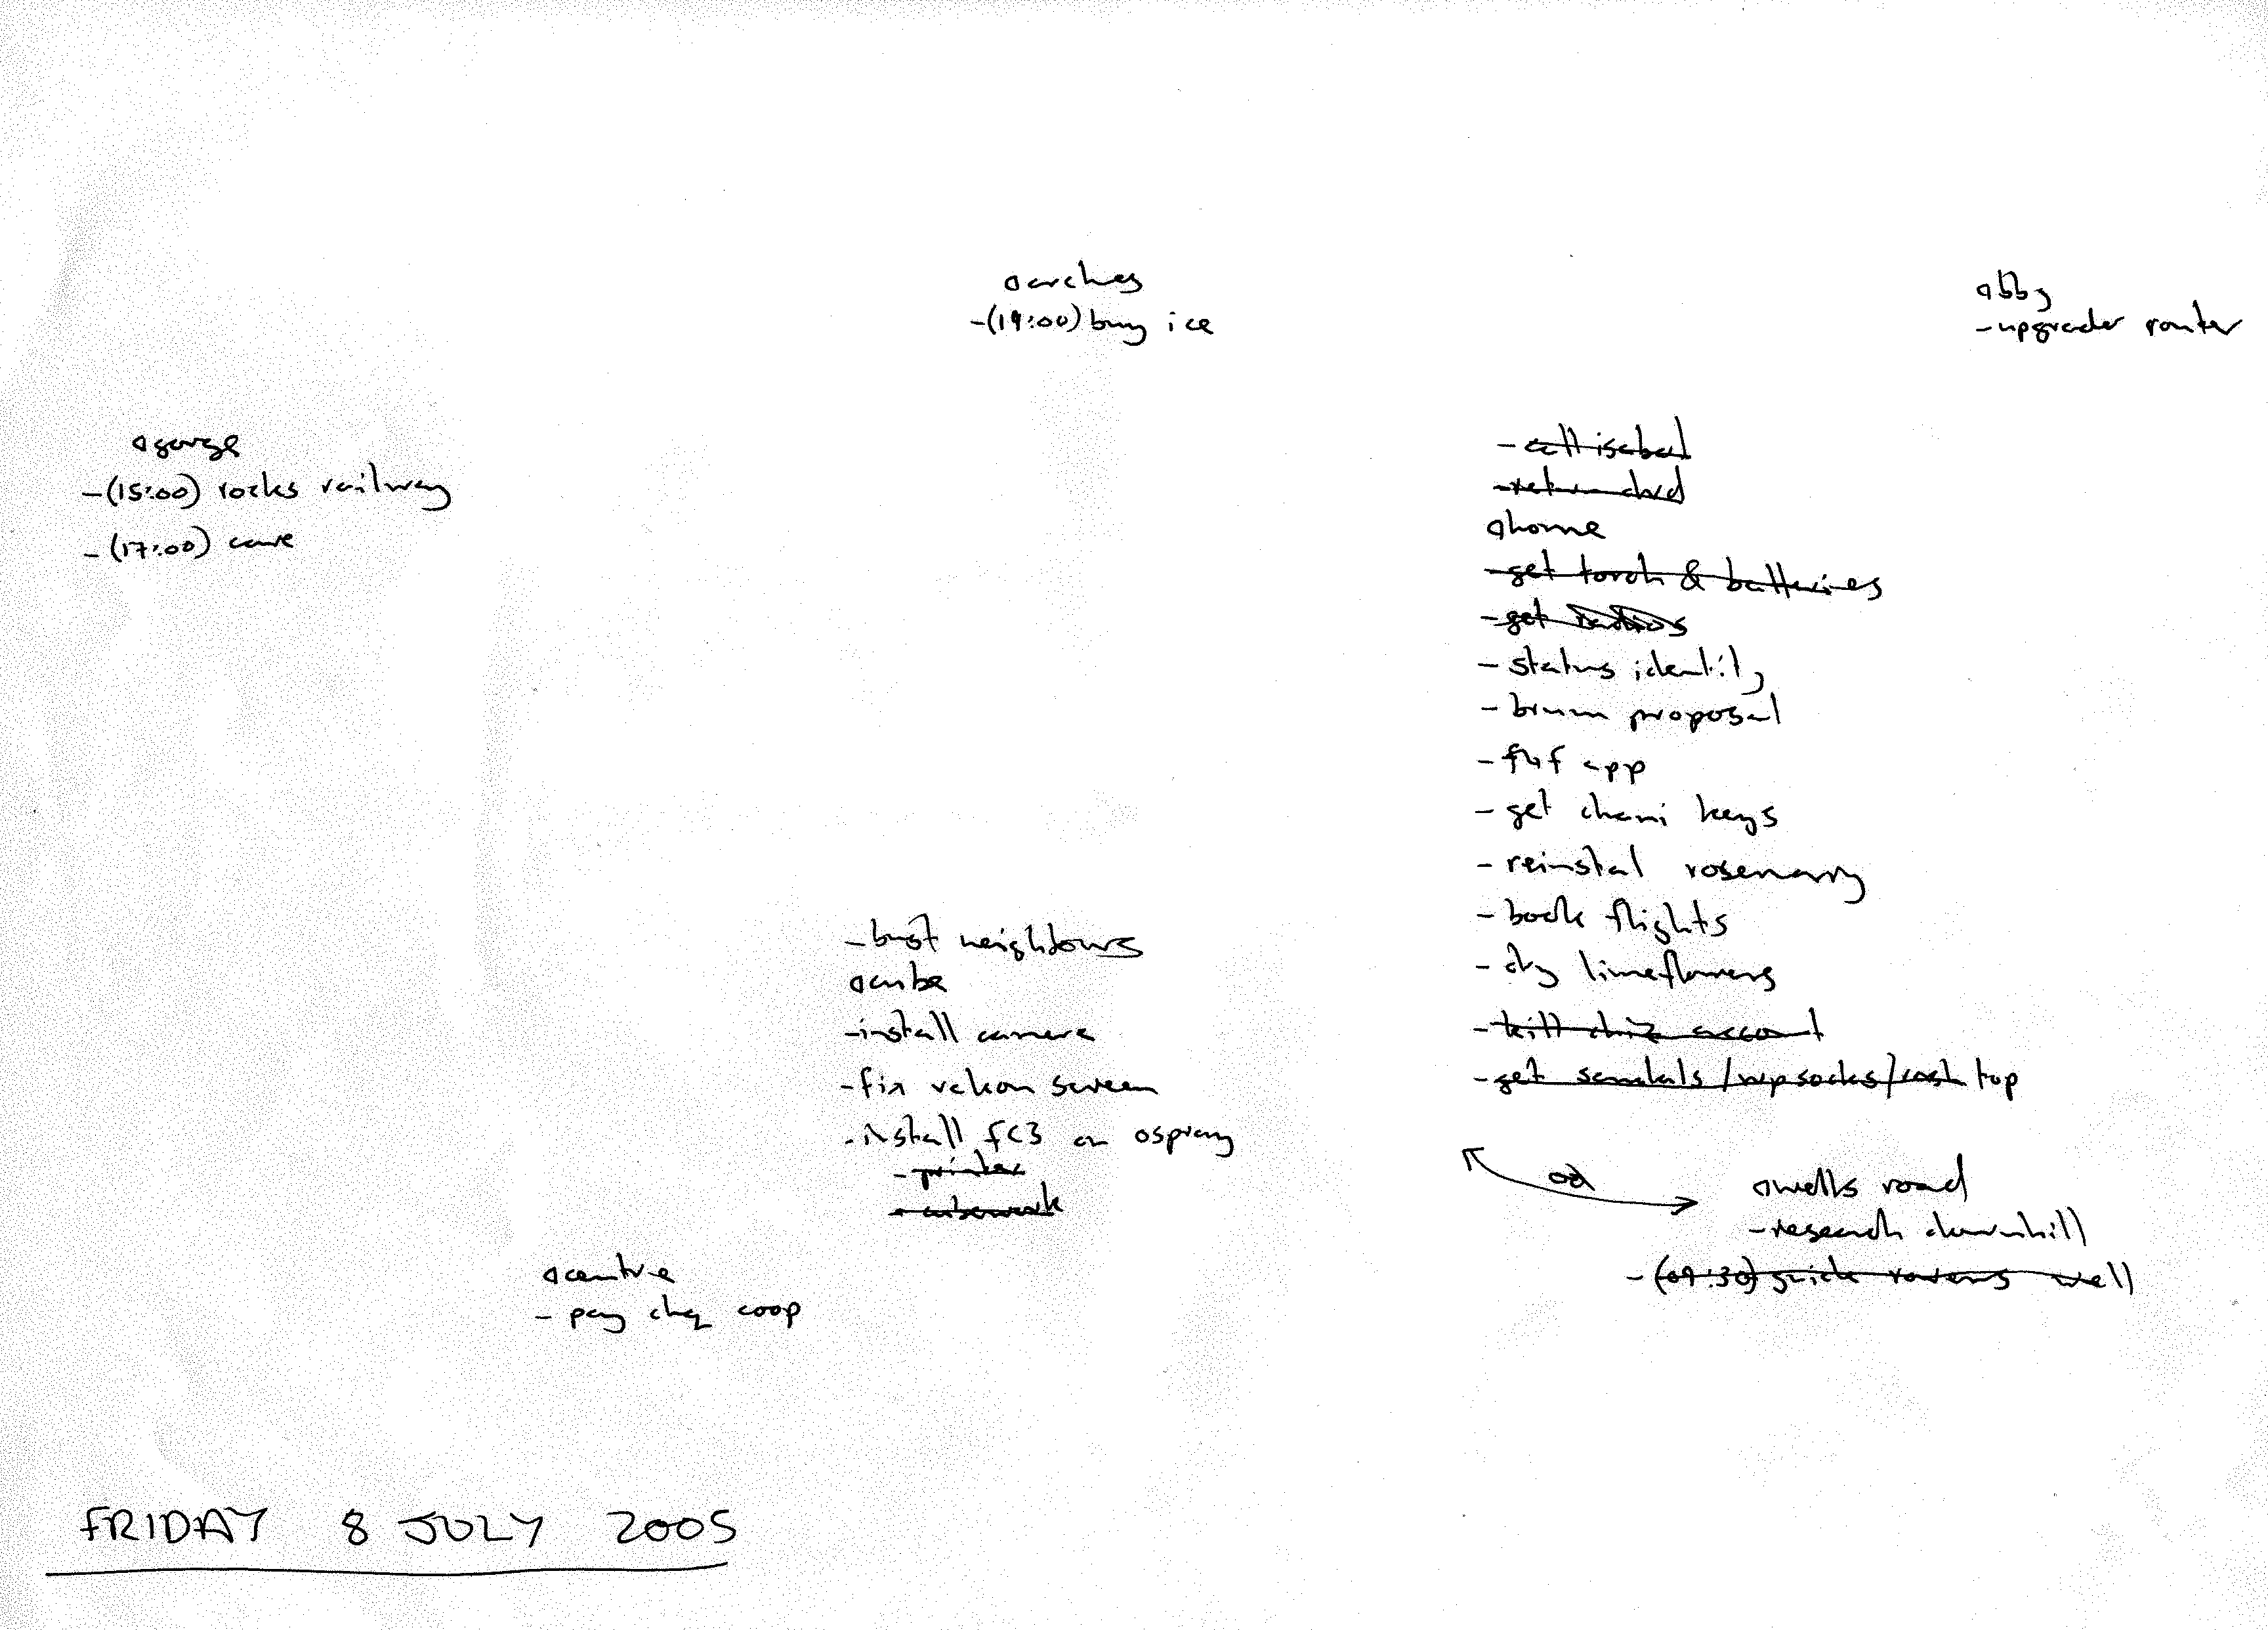 arches
-(19:00) buy ice
abby
-upgrade router
gorge
-(15:00) rocks railway
-(17:00) cave
-call isabel
-return dvd
home
-get torch & batteries
-get
-status identity
-brum proposal
-app
-get chani keys
-reinstal rosemary
-book flights
-dry limeflowers
-kill account
-get sandals / socks / top
- neighbours
cube
-install camera
-fix screen
-install fc3 on ospray
-printer
-cubework
wells road
-research downhill
-(09:30) guide well
centre
- pay chq coop
FRIDAY 8 JULY 2005